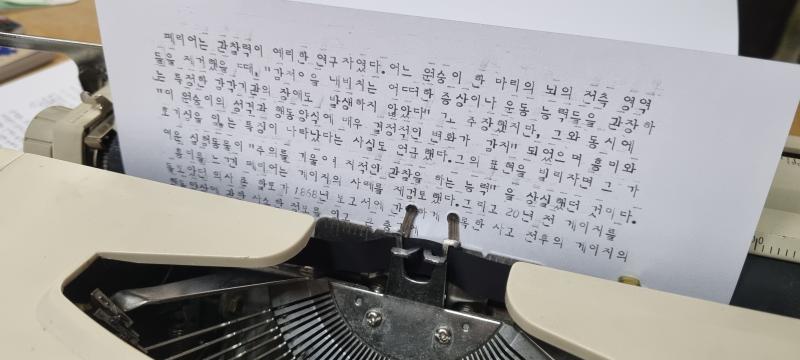 페리어는 관찰력이 예리한 연구자였다. 어느 원숭이 한 마리의 뇌의 전측 영역
들을 제거했을 때, "감저ㅇ을 내비치는 어떠한 증상이나 운동 능력들을 관장하
는 특정한 감각기관의 장애도 발생하지 않았다"고 주장했지만, 그와 동시에
"이 원숭이의 성격과 행동양식에 매우 결정적인 변화가 감지" 되었으며 흥미와
호기심을 잃는 특징이 나타났다는 사실도 연구했다. 그의 표현을 빌리자면 그 가
여운 실험동물이 "주의를 기울여 지적인 관찰을 하는 능력"을 상실했던 것이다.
흥미를 느낀 페리어는 게이지의 사례를 재검토했다. 그리고 20년 전 게이지를
돌보았던 의사 존 할로가 1868년 보고서에 사고 전후의 게이지의